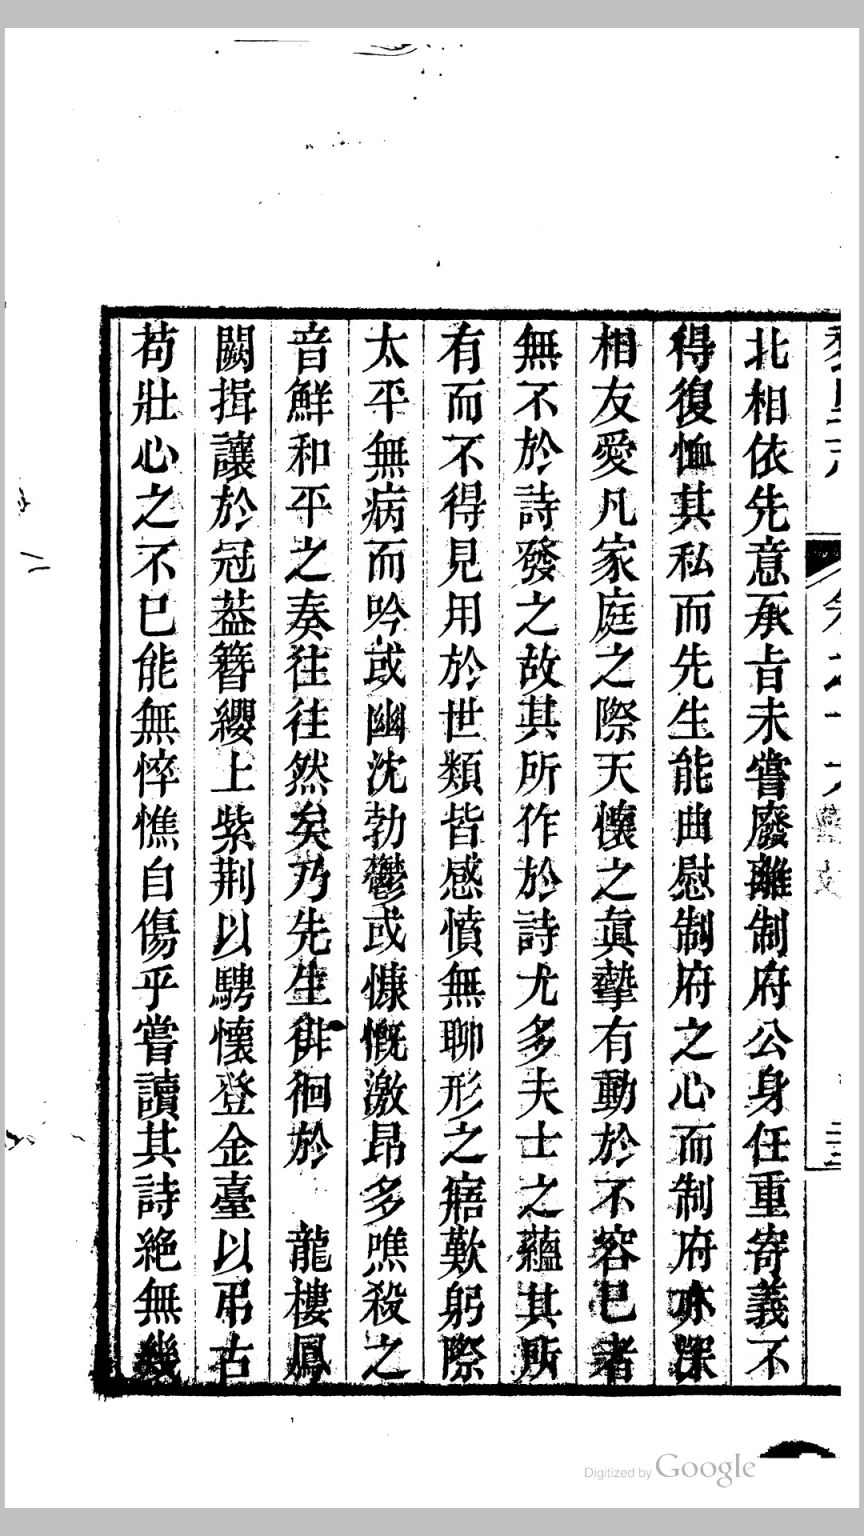 北相依先意承㫖未嘗廢離制府公身任重寄義不
得復恤其私而先生能曲慰制府之心而制府亦深
相友愛凡家庭之際天懷之眞摯有動於不容已者
無不於詩發之故其所作於詩尤多夫士之蘊其所
有而不得見用於世類皆感憤無聊形之寤歎躬際
太平無病而吟或幽沈勃鬱或慷慨激昂多噍殺之
音鮮和平之奏往往然矣乃先生徘徊於　龍樓鳳
闕揖讓於冠葢簪纓上紫荆以騁懷登金臺以弔古
苟壯心之不已能無悴憔自傷乎嘗讀其詩絶無幾
Digitized by Google